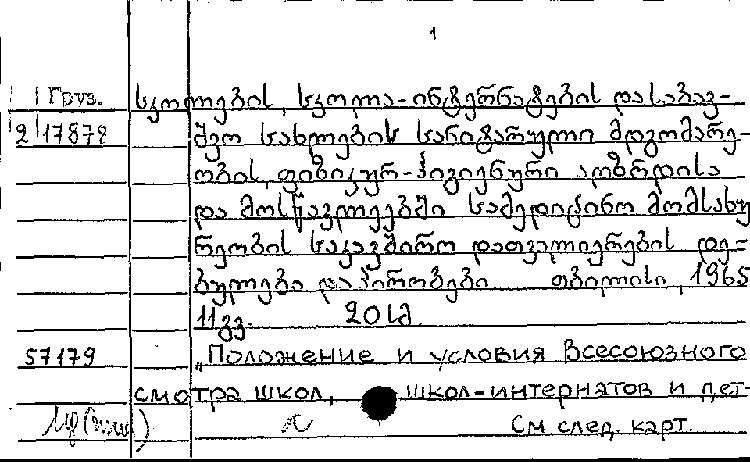 1
Груз. სკოლების, სკოლა-ინტერნატების და საბავ-
2 17878 შვო სახლების სანიტარული მდგომარე-
ობის, ფიზიკურ-ჰიგიენური აღზრდისა
და მოსწავლეებში სამედიცინო მომსახუ
რეობის საკავშირო დათვალიერების დე-
ბულება და პირობები თბილისი, 1965
11 გვ. 20 სმ.
57179 „Положение и условия Всесоюзного
смотра школ, школ-интернатов и дет-
См след. карт.